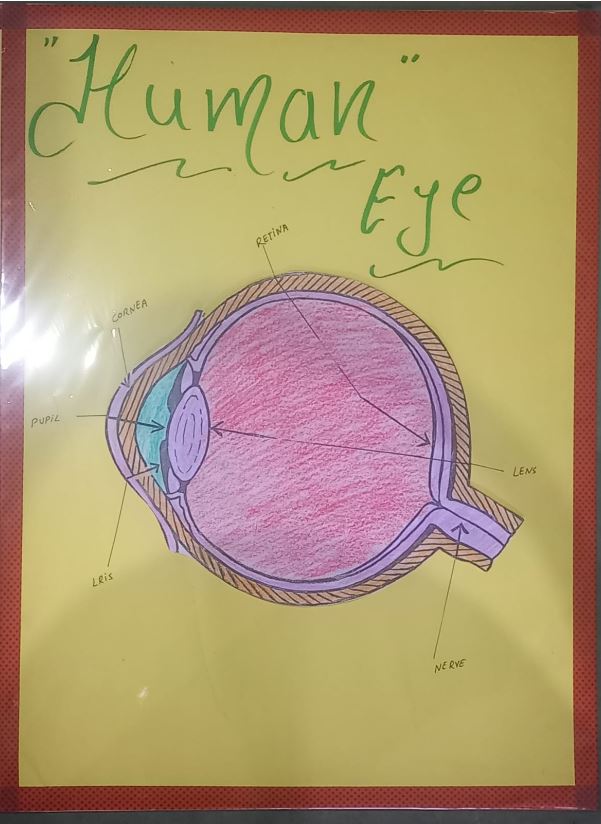 "Human"
Eye
RETINA
CORNEA
PUPIL
LENS
LRIS
NERVE